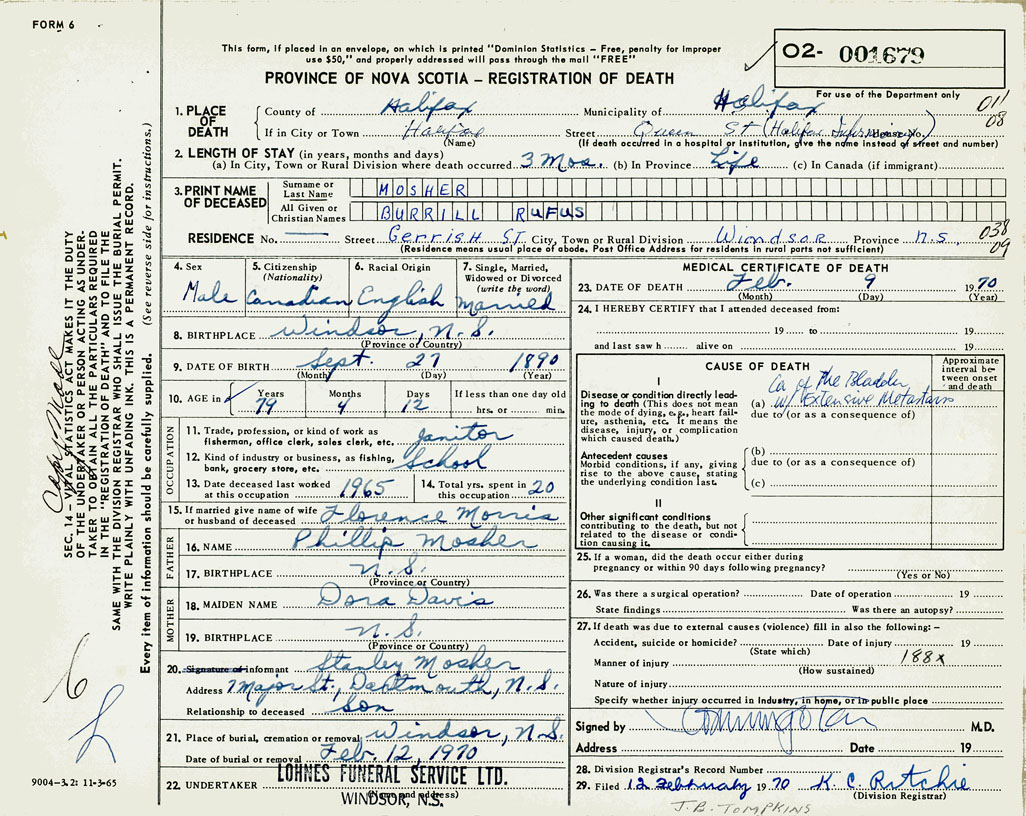 FORM 6
This form, if placed in an envelope, on which is printed "Dominion Statistics – Free, penalty for improper
use $50," and properly addressed will pass through the mail "FREE"
PROVINCE OF NOVA SCOTIA – REGISTRATION OF DEATH
O2- 001679
For use of the Department only
011
08
1. PLACE OF DEATH
County of Halifax Municipality of Halifax
If in City or Town Halifax Street Queen St (Halifax Infirmary) House No.
(Name) (If death occurred in a hospital or institution, give the name instead of street and number)
2. LENGTH OF STAY (in years, months and days)
(a) In City, Town or Rural Division where death occurred 3 Mos. (b) In Province Life (c) In Canada (if immigrant)
3. PRINT NAME OF DECEASED
Surname or Last Name MOSHER
All Given or Christian Names BURRILL RUFUS
RESIDENCE No. — Street Gerrish St City, Town or Rural Division Windsor Province N.S.
038
09
(Residence means usual place of abode. Post Office Address for residents in rural parts not sufficient)
4. Sex Male
5. Citizenship (Nationality) Canadian
6. Racial Origin English
7. Single, Married, Widowed or Divorced (write the word) Married
8. BIRTHPLACE Windsor, N.S.
(Province or Country)
9. DATE OF BIRTH Sept. 27 1890
(Month) (Day) (Year)
10. AGE in Years 79 Months 4 Days 12 If less than one day old hrs. or min.
OCCUPATION
11. Trade, profession, or kind of work as fisherman, office clerk, sales clerk, etc. Janitor
12. Kind of industry or business, as fishing, bank, grocery store, etc. School
13. Date deceased last worked at this occupation 1965
14. Total yrs. spent in this occupation 20
15. If married give name of wife or husband of deceased Florence Morris
FATHER
16. NAME Phillip Mosher
17. BIRTHPLACE N.S.
(Province or Country)
MOTHER
18. MAIDEN NAME Dora Davis
19. BIRTHPLACE N.S.
(Province or Country)
20. Signature of informant Stanley Mosher
Address 7 Major St., Dartmouth, N.S.
Relationship to deceased Son
21. Place of burial, cremation or removal Windsor, N.S.
Date of burial or removal Feb. 12, 1970
22. UNDERTAKER LOHNES FUNERAL SERVICE LTD.
(Name and address)
WINDSOR, N.S.
MEDICAL CERTIFICATE OF DEATH
23. DATE OF DEATH Feb. 9 1970
(Month) (Day) (Year)
24. I HEREBY CERTIFY that I attended deceased from:
19 to 19
and last saw h alive on 19
CAUSE OF DEATH
Approximate interval between onset and death
I
Disease or condition directly leading to death (This does not mean the mode of dying, e.g., heart failure, asthenia, etc. It means the disease, injury, or complication which caused death.)
(a) Ca of the Bladder
w/ Extensive Metastasis
due to (or as a consequence of)
Antecedent causes
Morbid conditions, if any, giving rise to the above cause, stating the underlying condition last.
(b)
due to (or as a consequence of)
(c)
II
Other significant conditions
contributing to the death, but not related to the disease or condition causing it.
25. If a woman, did the death occur either during
pregnancy or within 90 days following pregnancy?
(Yes or No)
26. Was there a surgical operation? Date of operation 19
State findings Was there an autopsy?
27. If death was due to external causes (violence) fill in also the following: –
Accident, suicide or homicide? Date of injury 19
(State which)
Manner of injury 188x
(How sustained)
Nature of injury
Specify whether injury occurred in Industry, in home, or in public place
Signed by M.D.
Address Date 19
28. Division Registrar's Record Number
29. Filed 12 February 1970 K. C. Ritchie
(Division Registrar)
J.B. TOMPKINS
SEC. 14 – VITAL STATISTICS ACT MAKES IT THE DUTY
OF THE UNDERTAKER OR PERSON ACTING AS UNDER-
TAKER TO OBTAIN ALL THE PARTICULARS REQUIRED
IN THE "REGISTRATION OF DEATH" AND TO FILE THE
SAME WITH THE DIVISION REGISTRAR WHO SHALL ISSUE THE BURIAL PERMIT.
WRITE PLAINLY WITH UNFADING INK. THIS IS A PERMANENT RECORD.
Every item of information should be carefully supplied. (See reverse side for instructions.)
6
9004-3.2: 11-3-65